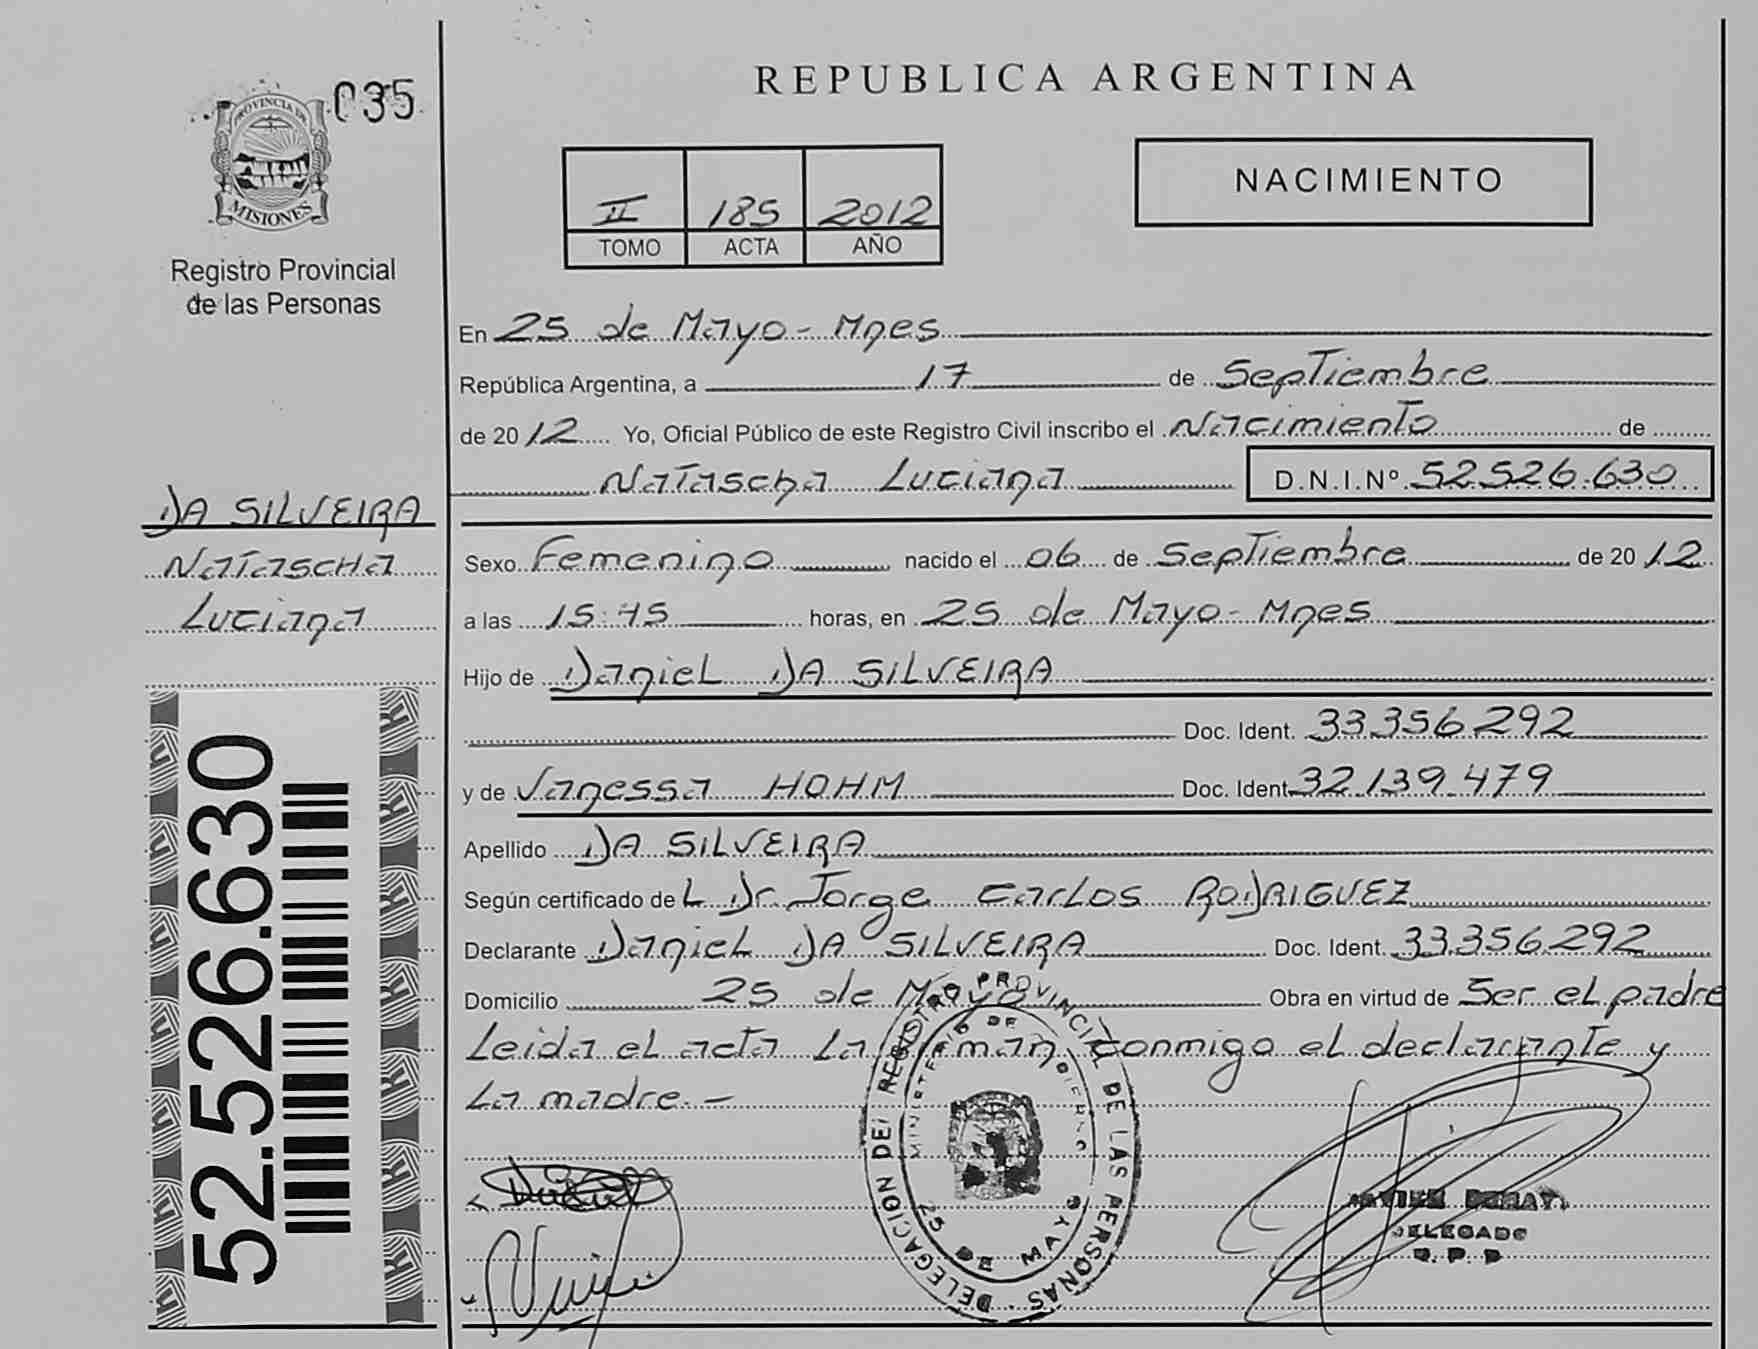 035
PROVINCIA DE
MISIONES
Registro Provincial
de las Personas
REPUBLICA ARGENTINA
II 185 2012
TOMO ACTA AÑO
NACIMIENTO
En 25 de Mayo - Mnes
República Argentina, a 17 de Septiembre
de 2012 Yo, Oficial Público de este Registro Civil inscribo el Nacimiento de
Natascha Luciana D.N.I.Nº 52.526.630
DA SILVEIRA
Natascha
Luciana
Sexo Femenino nacido el 06 de Septiembre de 2012
a las 15:45 horas, en 25 de Mayo - Mnes
Hijo de Daniel DA SILVEIRA
Doc. Ident. 33.356.292
y de Vanessa HOHM Doc. Ident 32.139.479
Apellido DA SILVEIRA
Según certificado de L Dr. Jorge Carlos RODRIGUEZ
Declarante Daniel DA SILVEIRA Doc. Ident. 33.356.292
Domicilio 25 de Mayo Obra en virtud de Ser el padre
Leida el acta La firman conmigo el declarante y
La madre.-
52.526.630
DELEGACION DEL REGISTRO PROVINCIAL DE LAS PERSONAS
MINISTERIO DE GOBIERNO
25 DE MAYO
DELEGADO